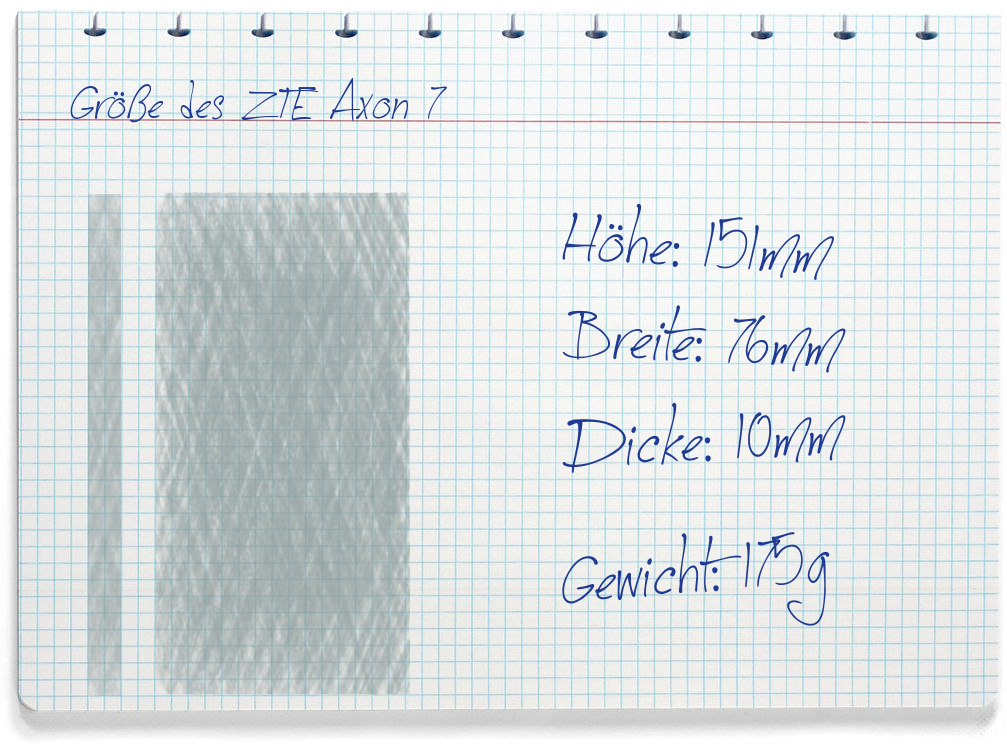 Größe des ZTE Axon 7
Höhe: 151mm
Breite: 76mm
Dicke: 10mm
Gewicht: 175g